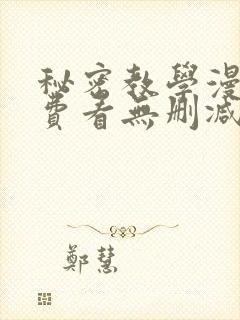 秘密教學漫
費看無刪減
鄭慧